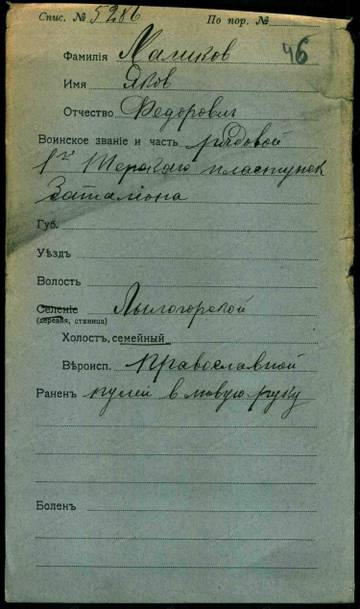 Спис. № 5286 По пор. №
46
Фамилія Маликов
Имя Яков
Отчество Федорович
Воинское званіе и часть рядовой
1го Терскаго пластунск
баталіона
Губ.
Уѣздъ
Волость
Селеніе Лысогорской
(деревня, станица)
Холостъ, семейный
Вѣроисп. Православной
Раненъ пулей в левую руку
Боленъ